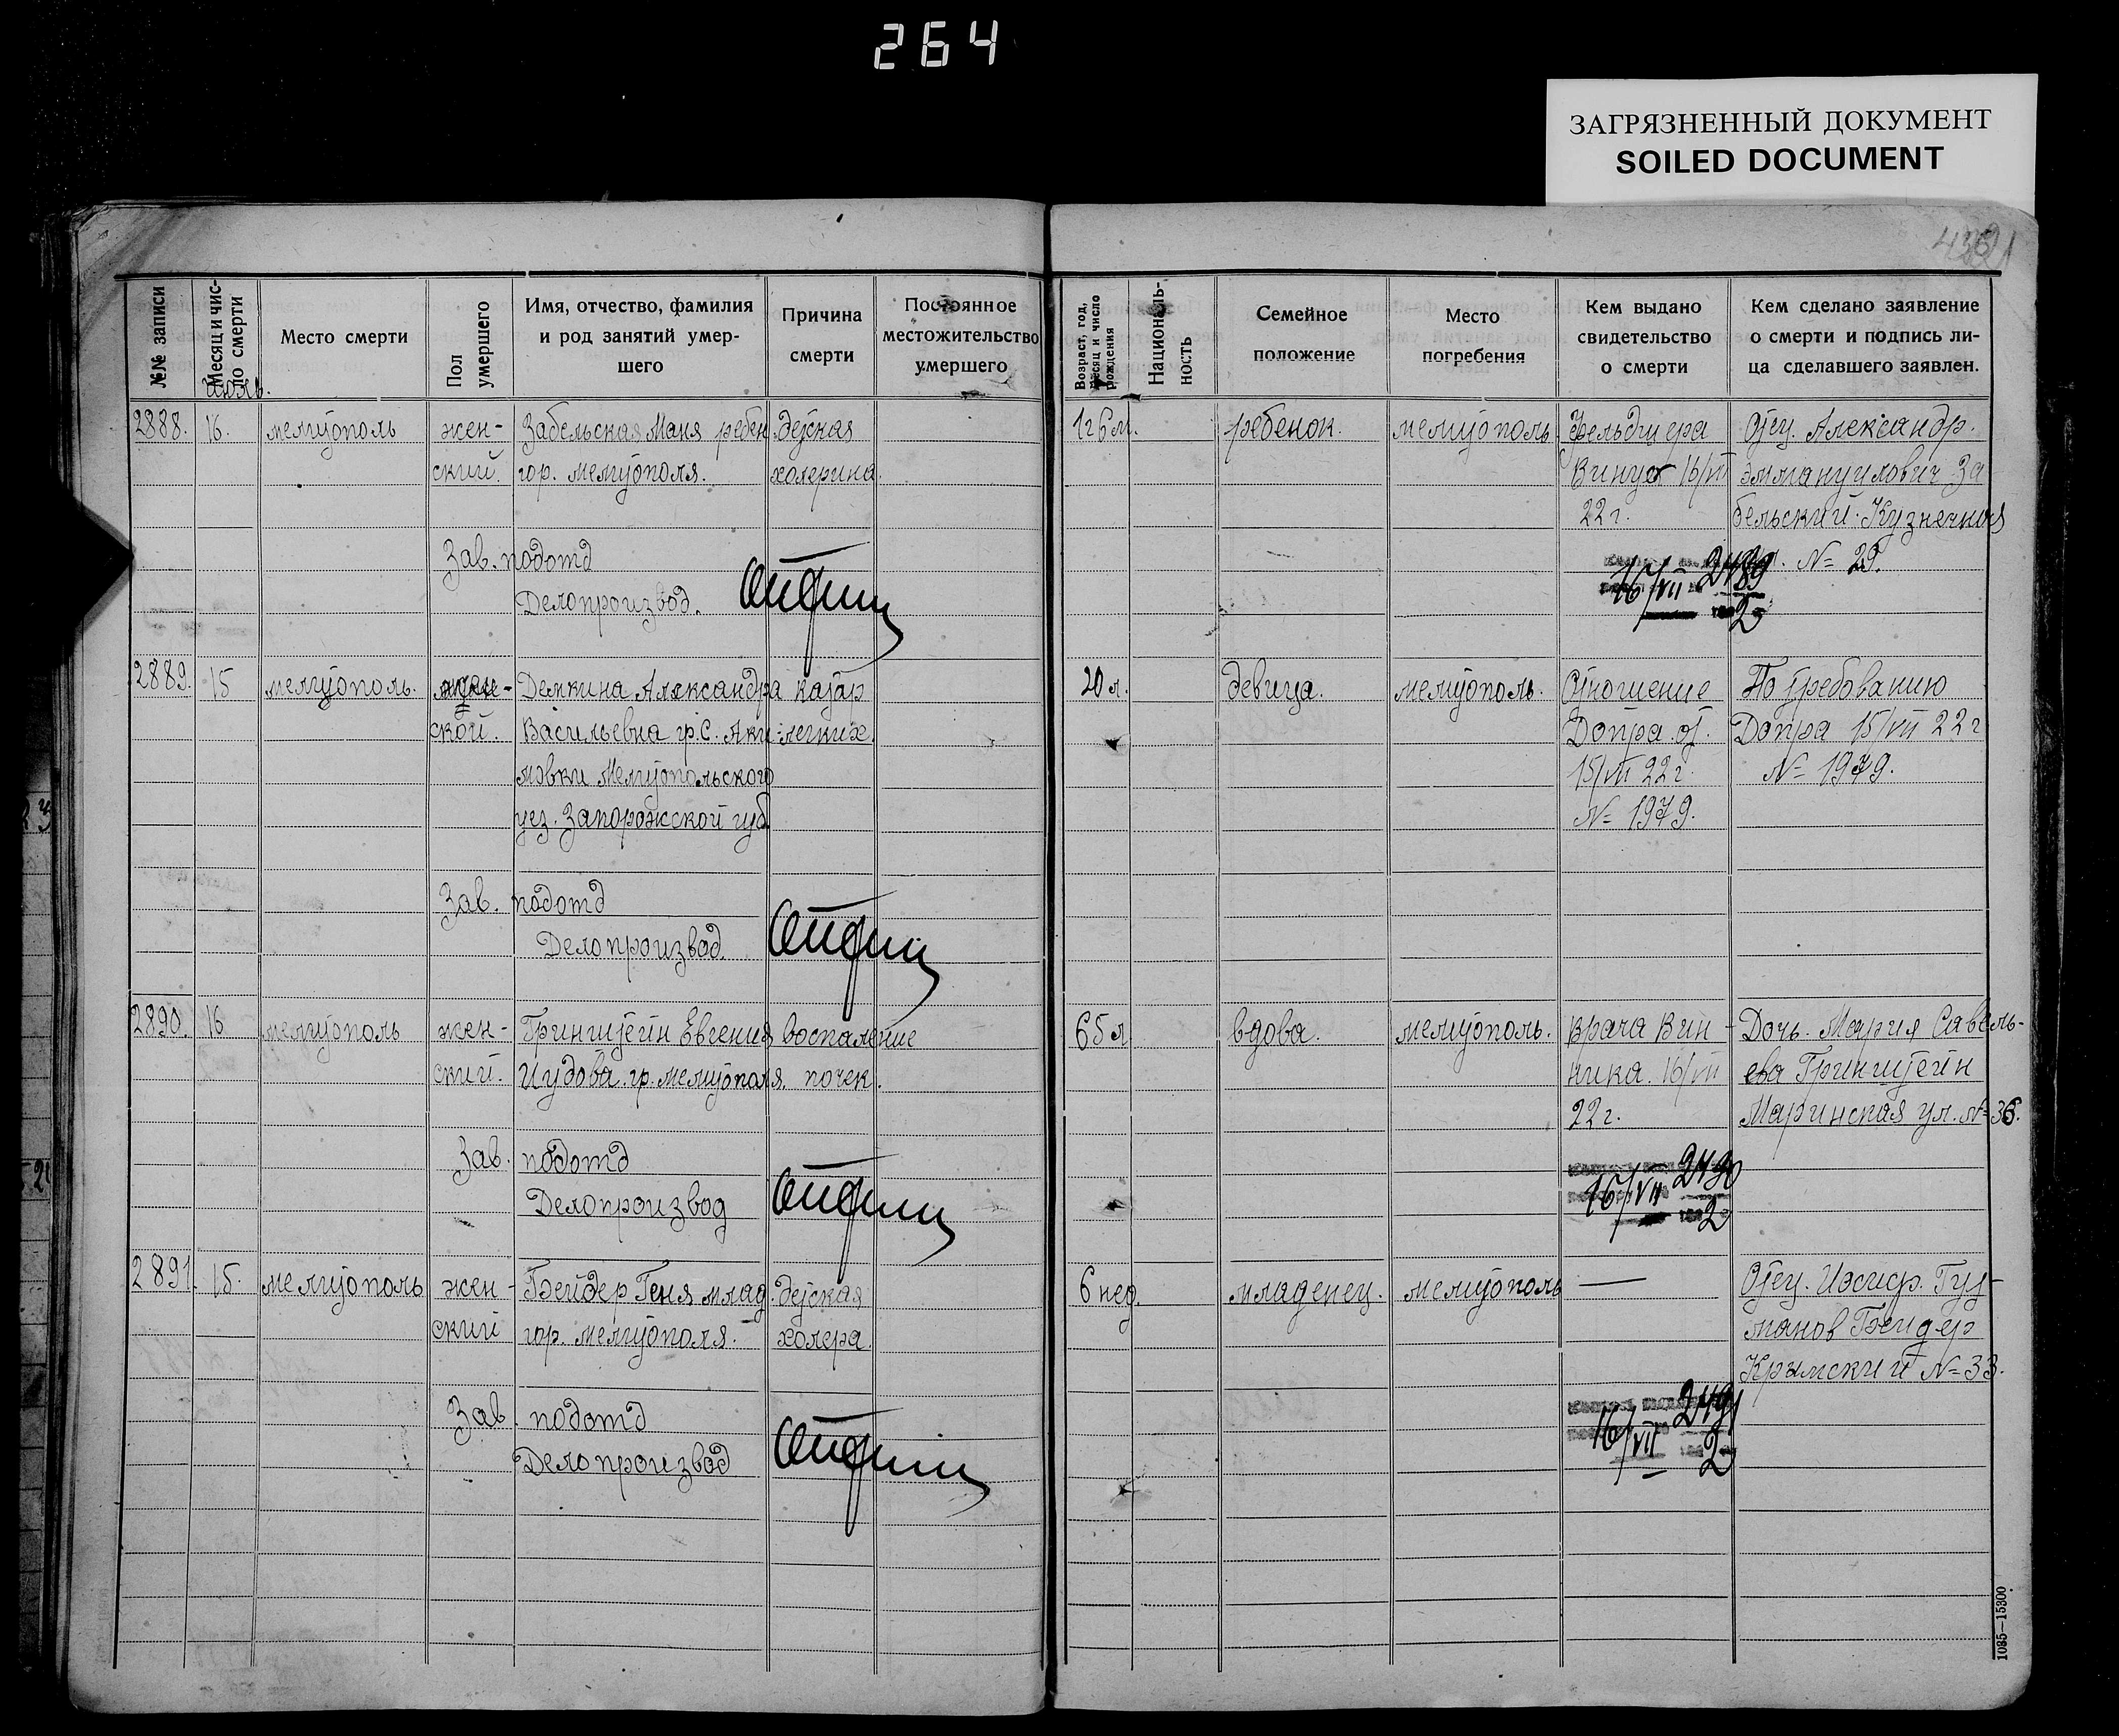 264
ЗАГРЯЗНЕННЫЙ ДОКУМЕНТ
SOILED DOCUMENT
№№ записи
Месяц и чис-
ло смерти
Место смерти
Пол
умершего
Имя, отчество, фамилия
и род занятий умер-
шего
Причина
смерти
Постоянное
местожительство
умершего
Возраст, год,
месяц и число
рождения
Националь-
ность
Семейное
положение
Место
погребения
Кем выдано
свидетельство
о смерти
Кем сделано заявление
о смерти и подпись ли-
ца сделавшего заявлен.
2888. 16. мелитополь жен- Забельская Маня ребен. детская 1 г 6 м. ребенок. мелитополь Фельдшера Отец. Александр.
ский. гор. мелитополя. холерина. 16/VII Эммануилович За
22 г. бельский. Кузнечная
№ 29.
Зав. подотд
Делопроизвод.
16/VII 2489
2
2889. 15 мелитополь. жен- Демкина Александра катар 20 л. девица. мелитополь. Отношение По требованию
ской. Васильевна гр. С. Аки- легких. Допра от. Допра 15/VII 22 г
мовки Мелитопольского 15/VII 22 г. № 1979.
уез. Запорожской губ № 1979.
Зав. подотд
Делопроизвод.
2890. 16 мелитополь жен- Гринштейн Евгения воспаление 65 л вдова. мелитополь. врача Вин- Дочь. Мария Савель-
ский. Иудова. гр. мелитополя. почек. ника. 16/VII ева Гринштейн
22 г. Маринская ул. № 36.
Зав. подотд
Делопроизвод
16/VII 2490
2
2891. 15. мелитополь жен- Бейдер Геня млад. детская 6 нед. младенец. мелитополь — Отец. Иосиф.
ский гор. мелитополя. холера. Бейдер
Крымский № 33.
Зав. подотд
Делопроизвод
16/VII 2491
2
1085—15300